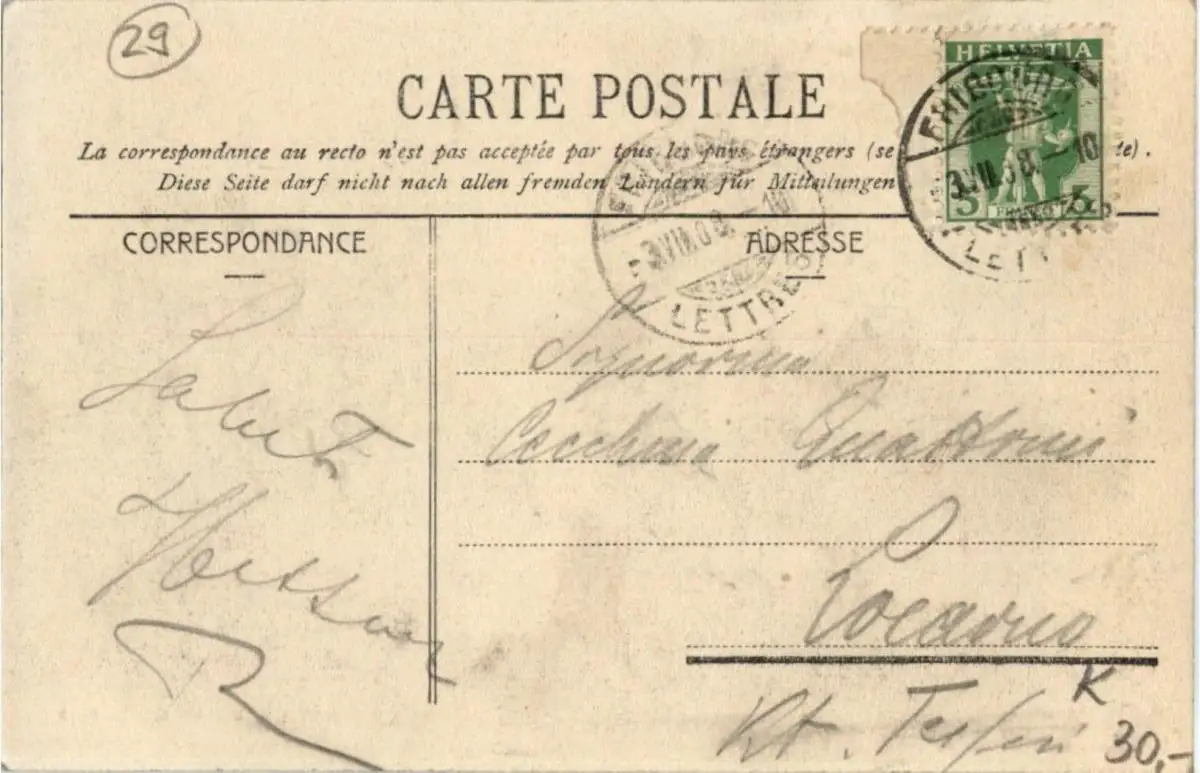 29
CARTE POSTALE
La correspondance au recto n'est pas acceptée par tous les pays étrangers (se
te).
Diese Seite darf nicht nach allen fremden Ländern für Mitteilungen
HELVETIA
5 5
FRIBOURG
3.VII.08.–10
LETTRES
3.VII.08.–10
LETTRES
CORRESPONDANCE
ADRESSE
Saluti
Signorina
Cecchina Quattrini
Locarno
Kt. Tessin
K
30,-